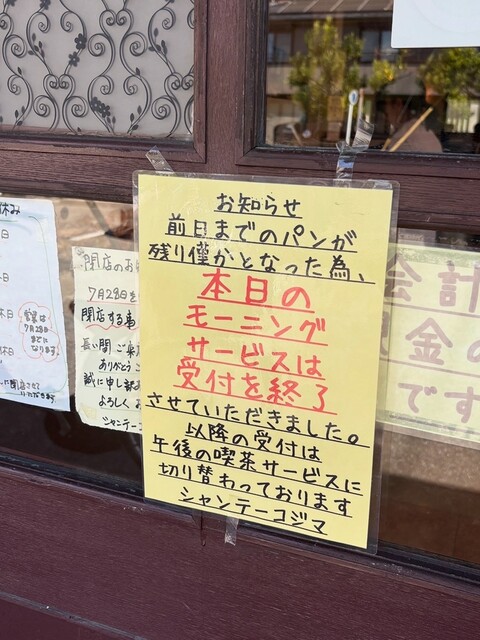 お知らせ
前日までのパンが
残り僅かとなった為、
本日の
モーニング
サービスは
受付を終了
させていただきました。
以降の受付は
午後の喫茶サービスに
切り替わっております
シャンテーコジマ
休み
日
日
休日
休日
営業は
7月28日
までに
なります
閉店のお知
7月28日を
閉店する事
長い間 ご来店
ありがとう ご
誠に申し訳あ
よろしく お
シャンテーコジ
会計
金の
です